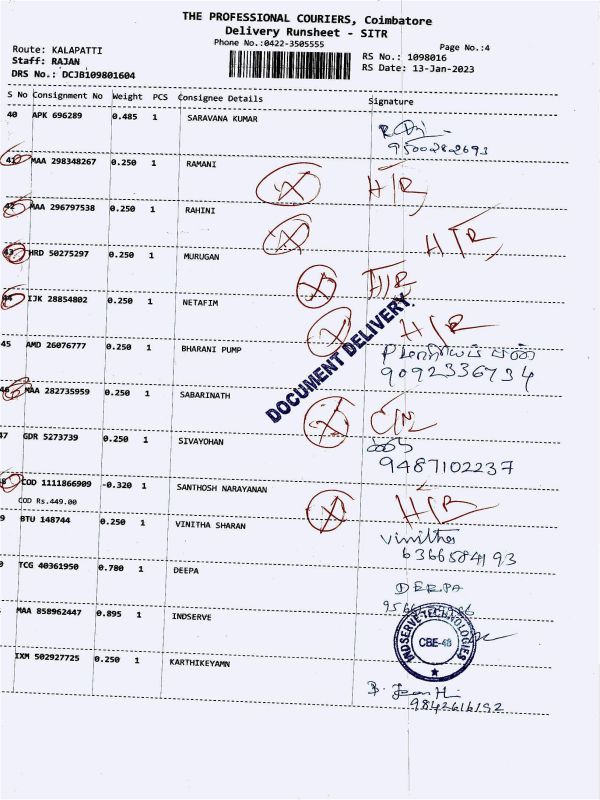 THE PROFESSIONAL COURIERS, Coimbatore
Delivery Runsheet - SITR
Phone No.:0422-3505555
Page No.:4
Route: KALAPATTI
Staff: RAJAN
DRS No.: DCJB109801604
RS No.: 1098016
RS Date: 13-Jan-2023
S No Consignment No Weight PCS Consignee Details Signature
40 APK 696289 0.485 1 SARAVANA KUMAR
9500282693
41 MAA 298348267 0.250 1 RAMANI
H/R
42 MAA 296797538 0.250 1 RAHINI
H/R
43 HRD 50275297 0.250 1 MURUGAN
H/R
44 IJK 28854802 0.250 1 NETAFIM
H/R
DOCUMENT DELIVERY.
45 AMD 26076777 0.250 1 BHARANI PUMP
9092336734
46 MAA 282735959 0.250 1 SABARINATH
C/N
47 GDR 5273739 0.250 1 SIVAYOHAN
9487102237
8 COD 1111866909 -0.320 1 SANTHOSH NARAYANAN
COD Rs.449.00
H/R
9 BTU 148744 0.250 1 VINITHA SHARAN
vinitha
6366584193
TCG 40361950 0.780 1 DEEPA
DEEPA
MAA 858962447 0.895 1 INDSERVE
INDSERVE TECHNOLOGIES
CBE-48
IXM 502927725 0.250 1 KARTHIKEYAMN
9842616192